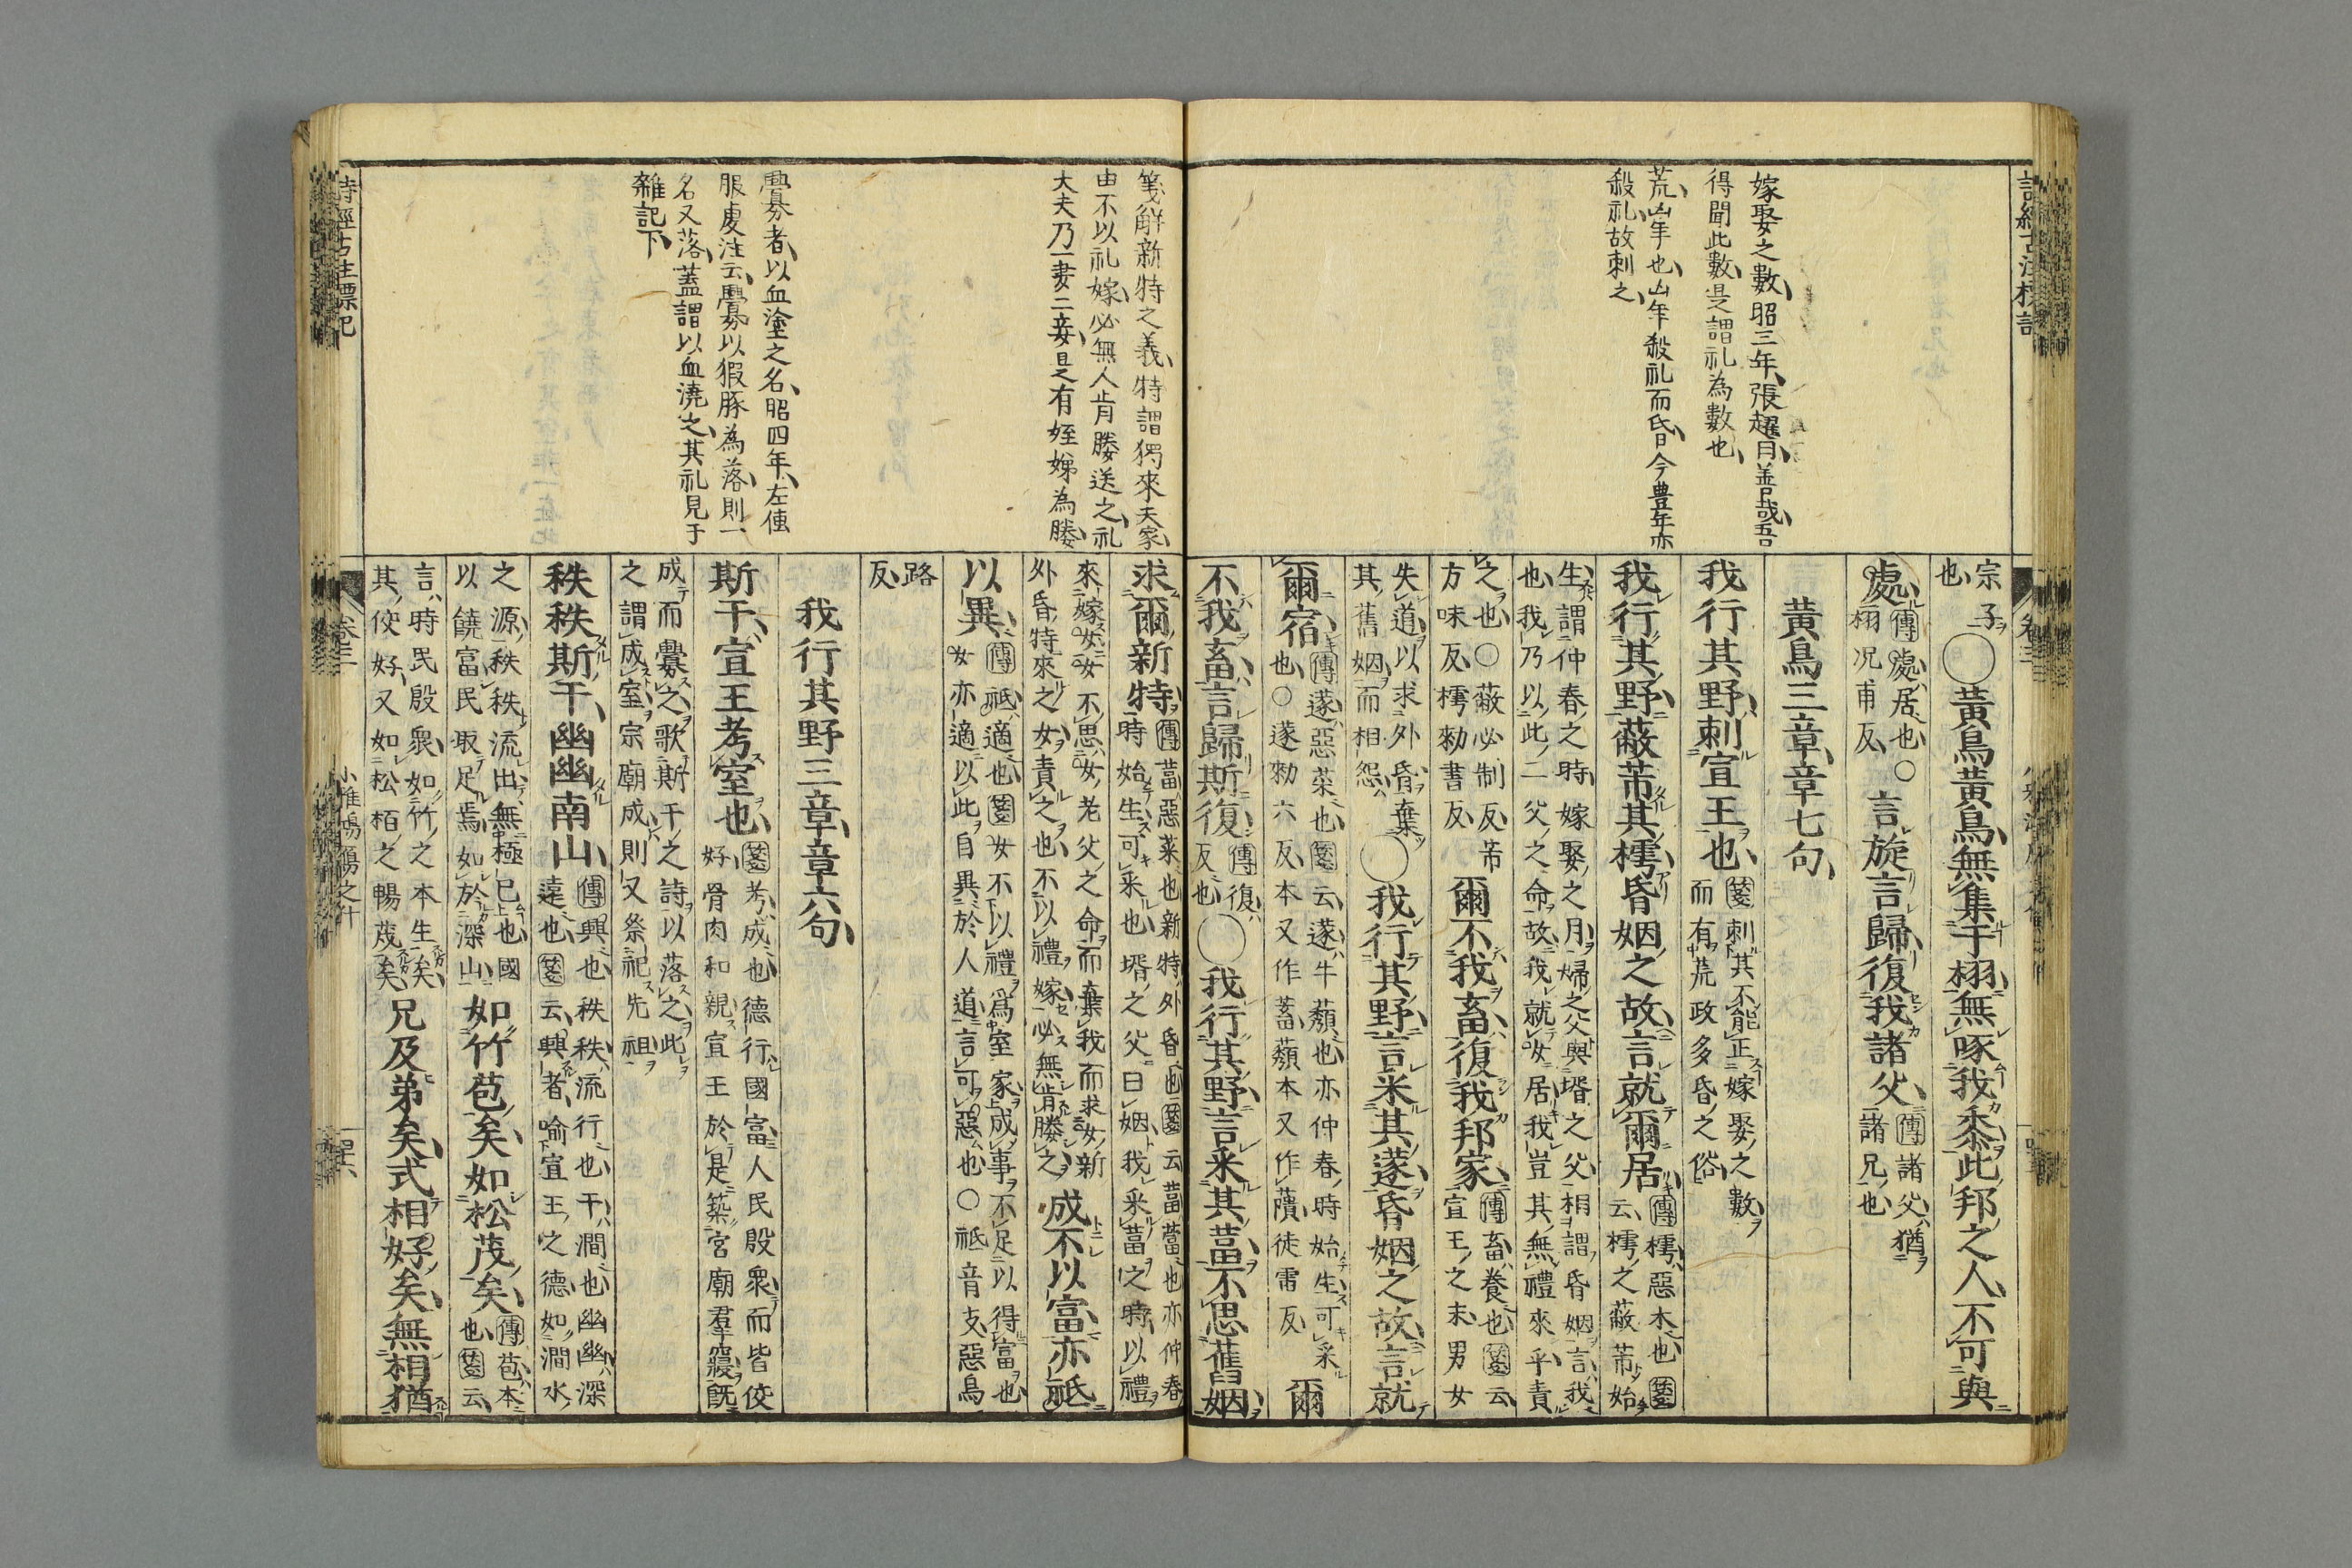 嫁娶之數昭三年張趯曰善哉吾
得聞此數是謂礼為數也
荒凶年也凶年殺礼而昏今豊年亦
殺礼故刺之
宗子也○黃鳥黃鳥無集于栩無啄我黍此邦之人不可與
處傳處居也○栩况甫反言旋言歸復我諸父傳諸父猶諸兄也
黃鳥三章章七句
我行其野刺宣王也箋刺其不能正嫁娶之數而有荒政多昏之俗
我行其野蔽芾其樗昏姻之故言就爾居傳樗惡木也箋云樗之蔽芾始
生謂仲春之時嫁娶之月婦之父與壻之父相謂昏姻言我也我乃以此二父之命故我就女居我豈其無禮來乎責
之也○蔽必制反芾方味反樗勑書反爾不我畜復我邦家傳畜養也箋云宣王之末男女
失道以求外昏棄其舊姻而相怨○我行其野言采其蓫昏姻之故言就
爾宿傳蓫惡菜也箋云蓫牛蘈也亦仲春時始生可采也○蓫勑六反本又作蓄蘈本又作蕢徒雷反爾
不我畜言歸斯復傳復反也○我行其野言采其葍不思舊姻
箋解新特之義特謂獨來夫家
由不以礼嫁必無人肯媵送之礼
大夫乃一妻二妾是有姪娣為媵
釁者以血塗之名昭四年左傳
服虔注云釁以豭豚為落則一
名又落蓋謂以血澆之其礼見于
雜記下
求爾新特傳葍惡菜也新特外昏也箋云葍䔰也亦仲春時始生可采也壻之父曰姻我采葍之時以禮
來嫁女女不思女老父之命而棄我而求女新外昏特來之女責之也不以禮嫁必無肯媵之成不以富亦祗
以異傳祗適也箋女不以禮爲室家成事不足以得富也女亦適以此自異於人道言可惡也○祗音支惡烏
路反
我行其野三章章六句
斯干宣王考室也箋考成也德行國富人民殷衆而皆佼好骨肉和親宣王於是築宮廟羣寢既
成而釁之歌斯干之詩以落之此之謂成室宗廟成則又祭祀先祖
秩秩斯干幽幽南山傳興也秩秩流行也干澗也幽幽深遠也箋云興者喻宣王之德如澗水
之源秩秩流出無極已也國以饒富民取足焉如於深山如竹苞矣如松茂矣傳苞本也箋云
言時民殷衆如竹之本生矣其佼好又如松栢之暢茂矣兄及弟矣式相好矣無相猶
詩經古注標記
卷三